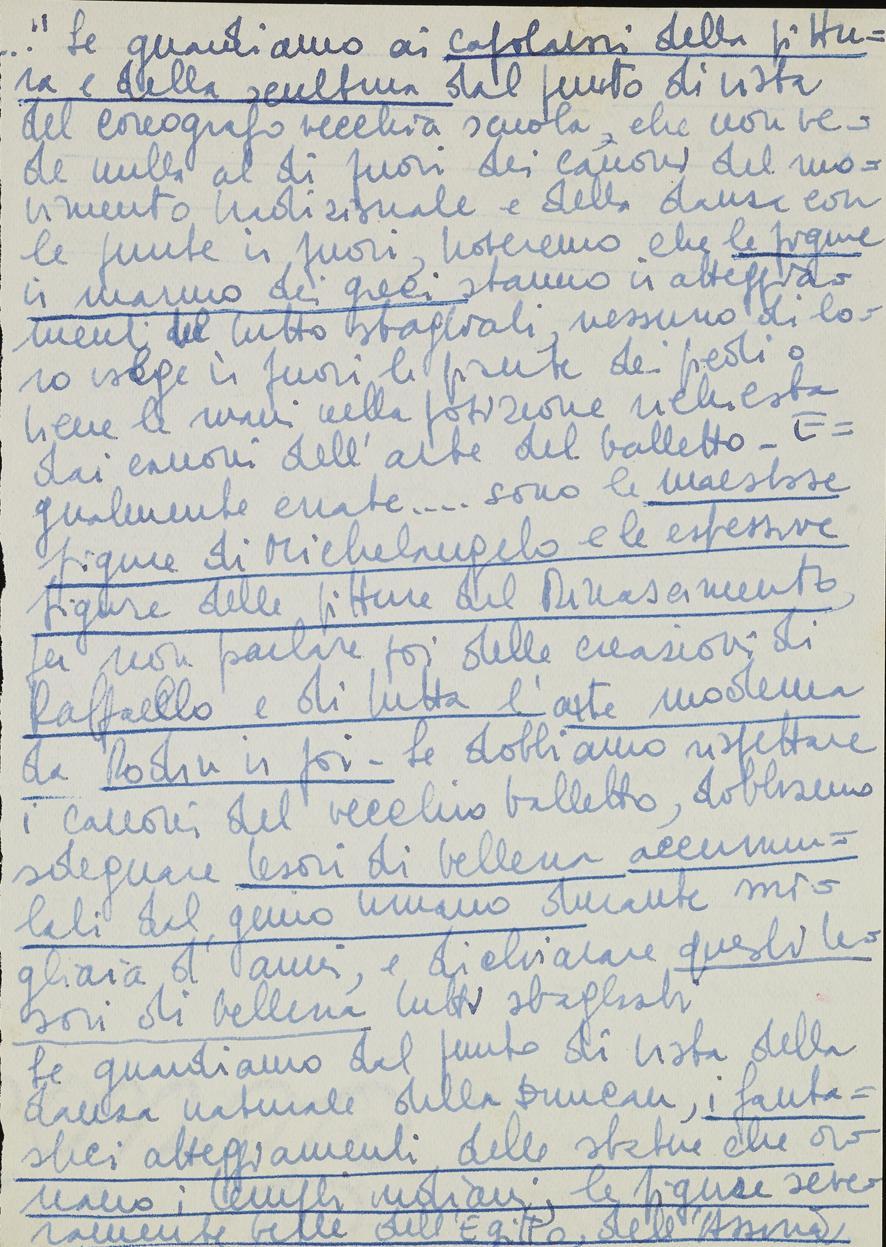 ..." Se guardiamo ai capolavori della pittu=
ra e della scultura dal punto di vista
del coreografo vecchia scuola, che non ve=
de nulla al di fuori dei canoni del mo=
vimento tradizionale e della danza con
le punte in fuori, noteremo che le figure
in marmo dei greci stanno in atteggia=
menti del tutto sbagliati, nessuno di lo=
ro volge in fuori le punte dei piedi o
tiene le mani nella posizione richiesta
dai canoni dell'arte del balletto - E=
gualmente errate.... sono le maestose
figure di Michelangelo e le espressive
figure delle pitture del Rinascimento,
per non parlare poi delle creazioni di
Raffaello e di tutta l'arte moderna
da Rodin in poi - Se dobbiamo rispettare
i canoni del vecchio balletto, dobbiamo
sdegnare tesori di bellezza accumu=
lati dal genio umano durante mi=
gliaia d'anni, e dichiarare questi te=
sori di bellezza tutti sbagliati
Se guardiamo dal punto di vista della
danza naturale della Duncan, i fanta=
stici atteggiamenti delle statue che or=
nano i templi indiani, le figure seve=
ramente belle dell'Egitto, dell'Assiria